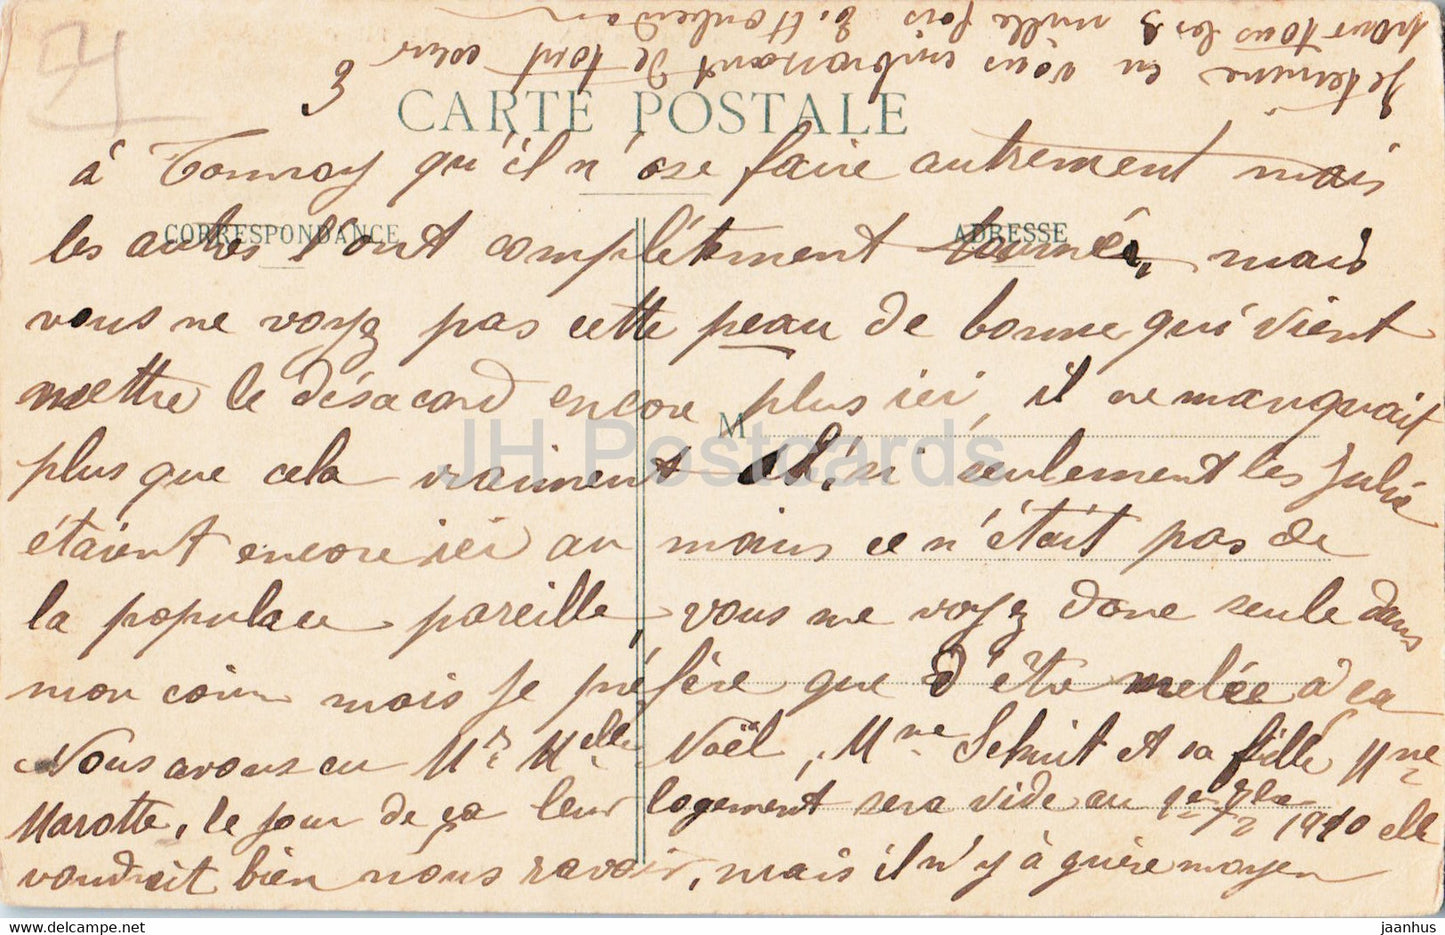 3
CARTE POSTALE
à Tonnay qu'il n'ose faire autrement mais
CORRESPONDANCE
ADRESSE
les autres sont complétement tournés, mais
vous ne voyez pas cette peau de bonne qui vient
mettre le désacord encore plus ici, il ne manquait
M
plus que cela vraiment et si seulement les Julié
étaient encore ici au moins ce n'était pas de
la populace pareille, vous me voyez donc seule dans
mon coin mais je préfère que d'être melée à ça
Nous avons eu Mr Melle Noël, Mme et sa fille Mme
Marotte, le jour de ça leur logement sera vide au 1er 1910 elle
voudrait bien nous ravoir, mais il n'y à guère moyen
Je termine en vous embrassant de tout coeur
pour tous les 3 mille fois
JH Postcards
jaanhus - www.hippostcard.com